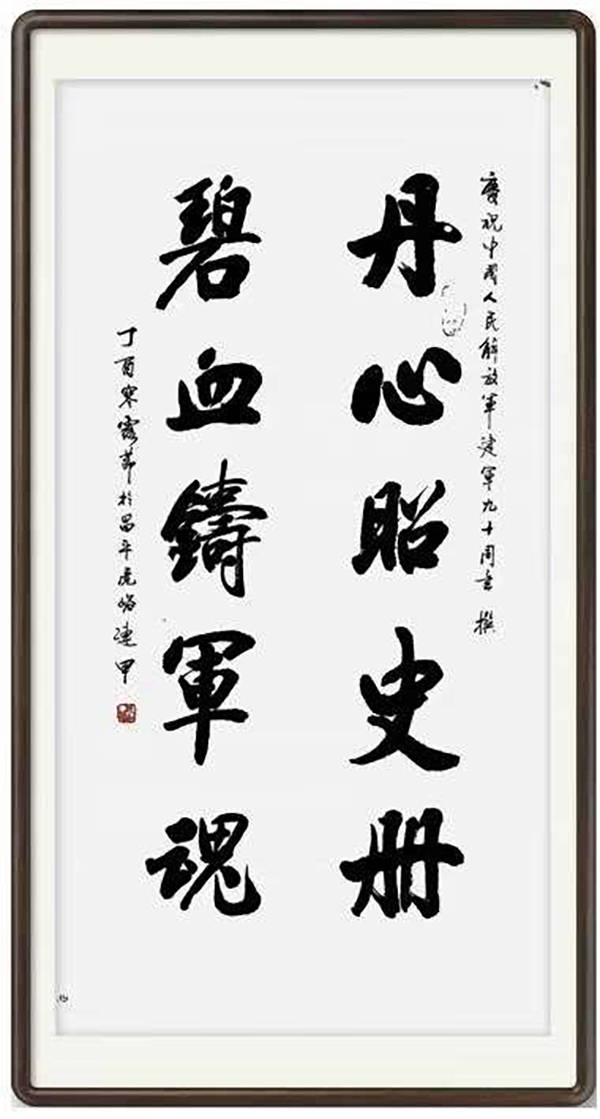 慶祝中國人民解放軍建軍九十周年 撰
丹心昭史册
碧血鑄軍魂
丁酉寒露節於昌平虎峪連甲